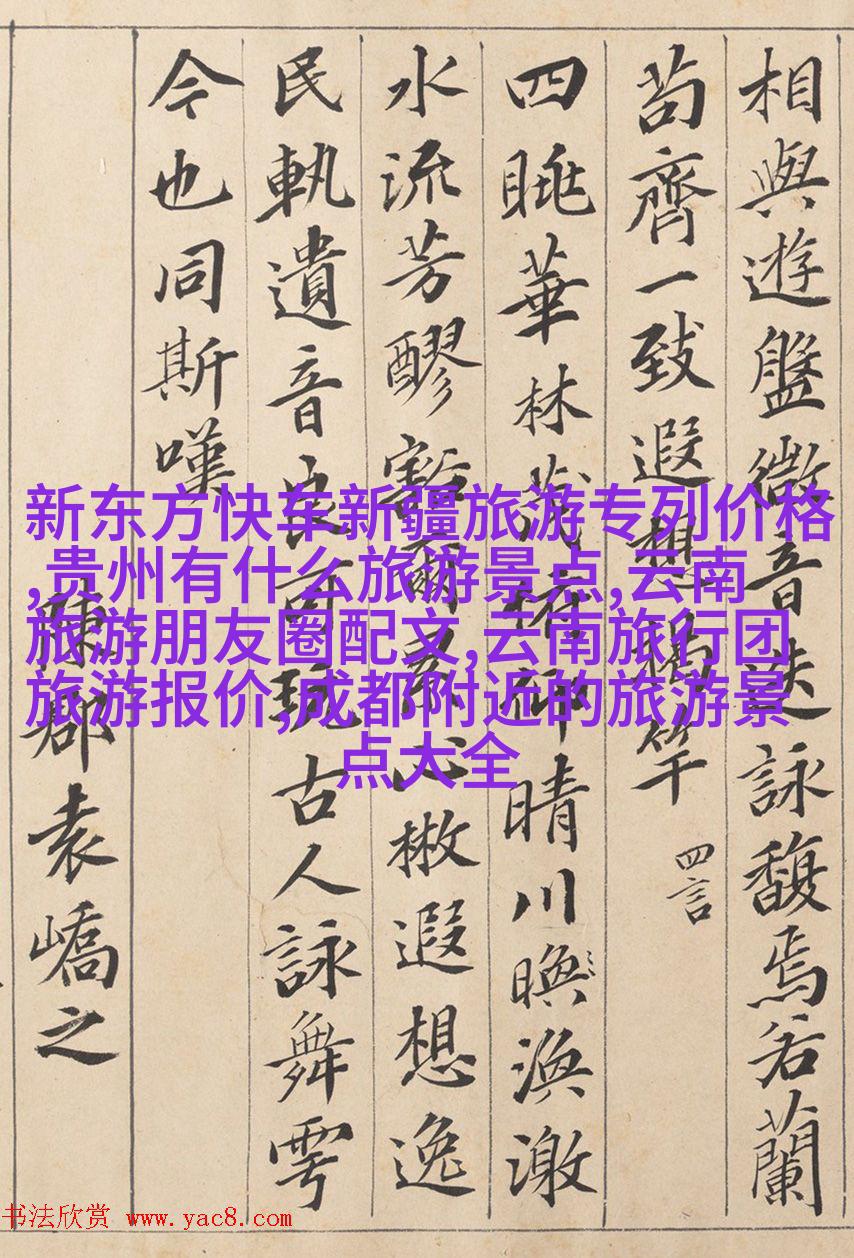 相與遊盤微音迭詠馥焉若蘭
茍齊一致遐想揭竿 四言
四眺華林茂俯仰晴川暎渙激
水流芳醪豁爾累心散遐想逸
民軌遺音良可玩古人詠舞雩
今也同斯嘆
陳郡袁嶠之
新东方快车新疆旅游专列价格
,贵州有什么旅游景点,云南
旅游朋友圈配文,云南旅行团
旅游报价,成都附近的旅游景
点大全
书法欣赏 www.yac8.com